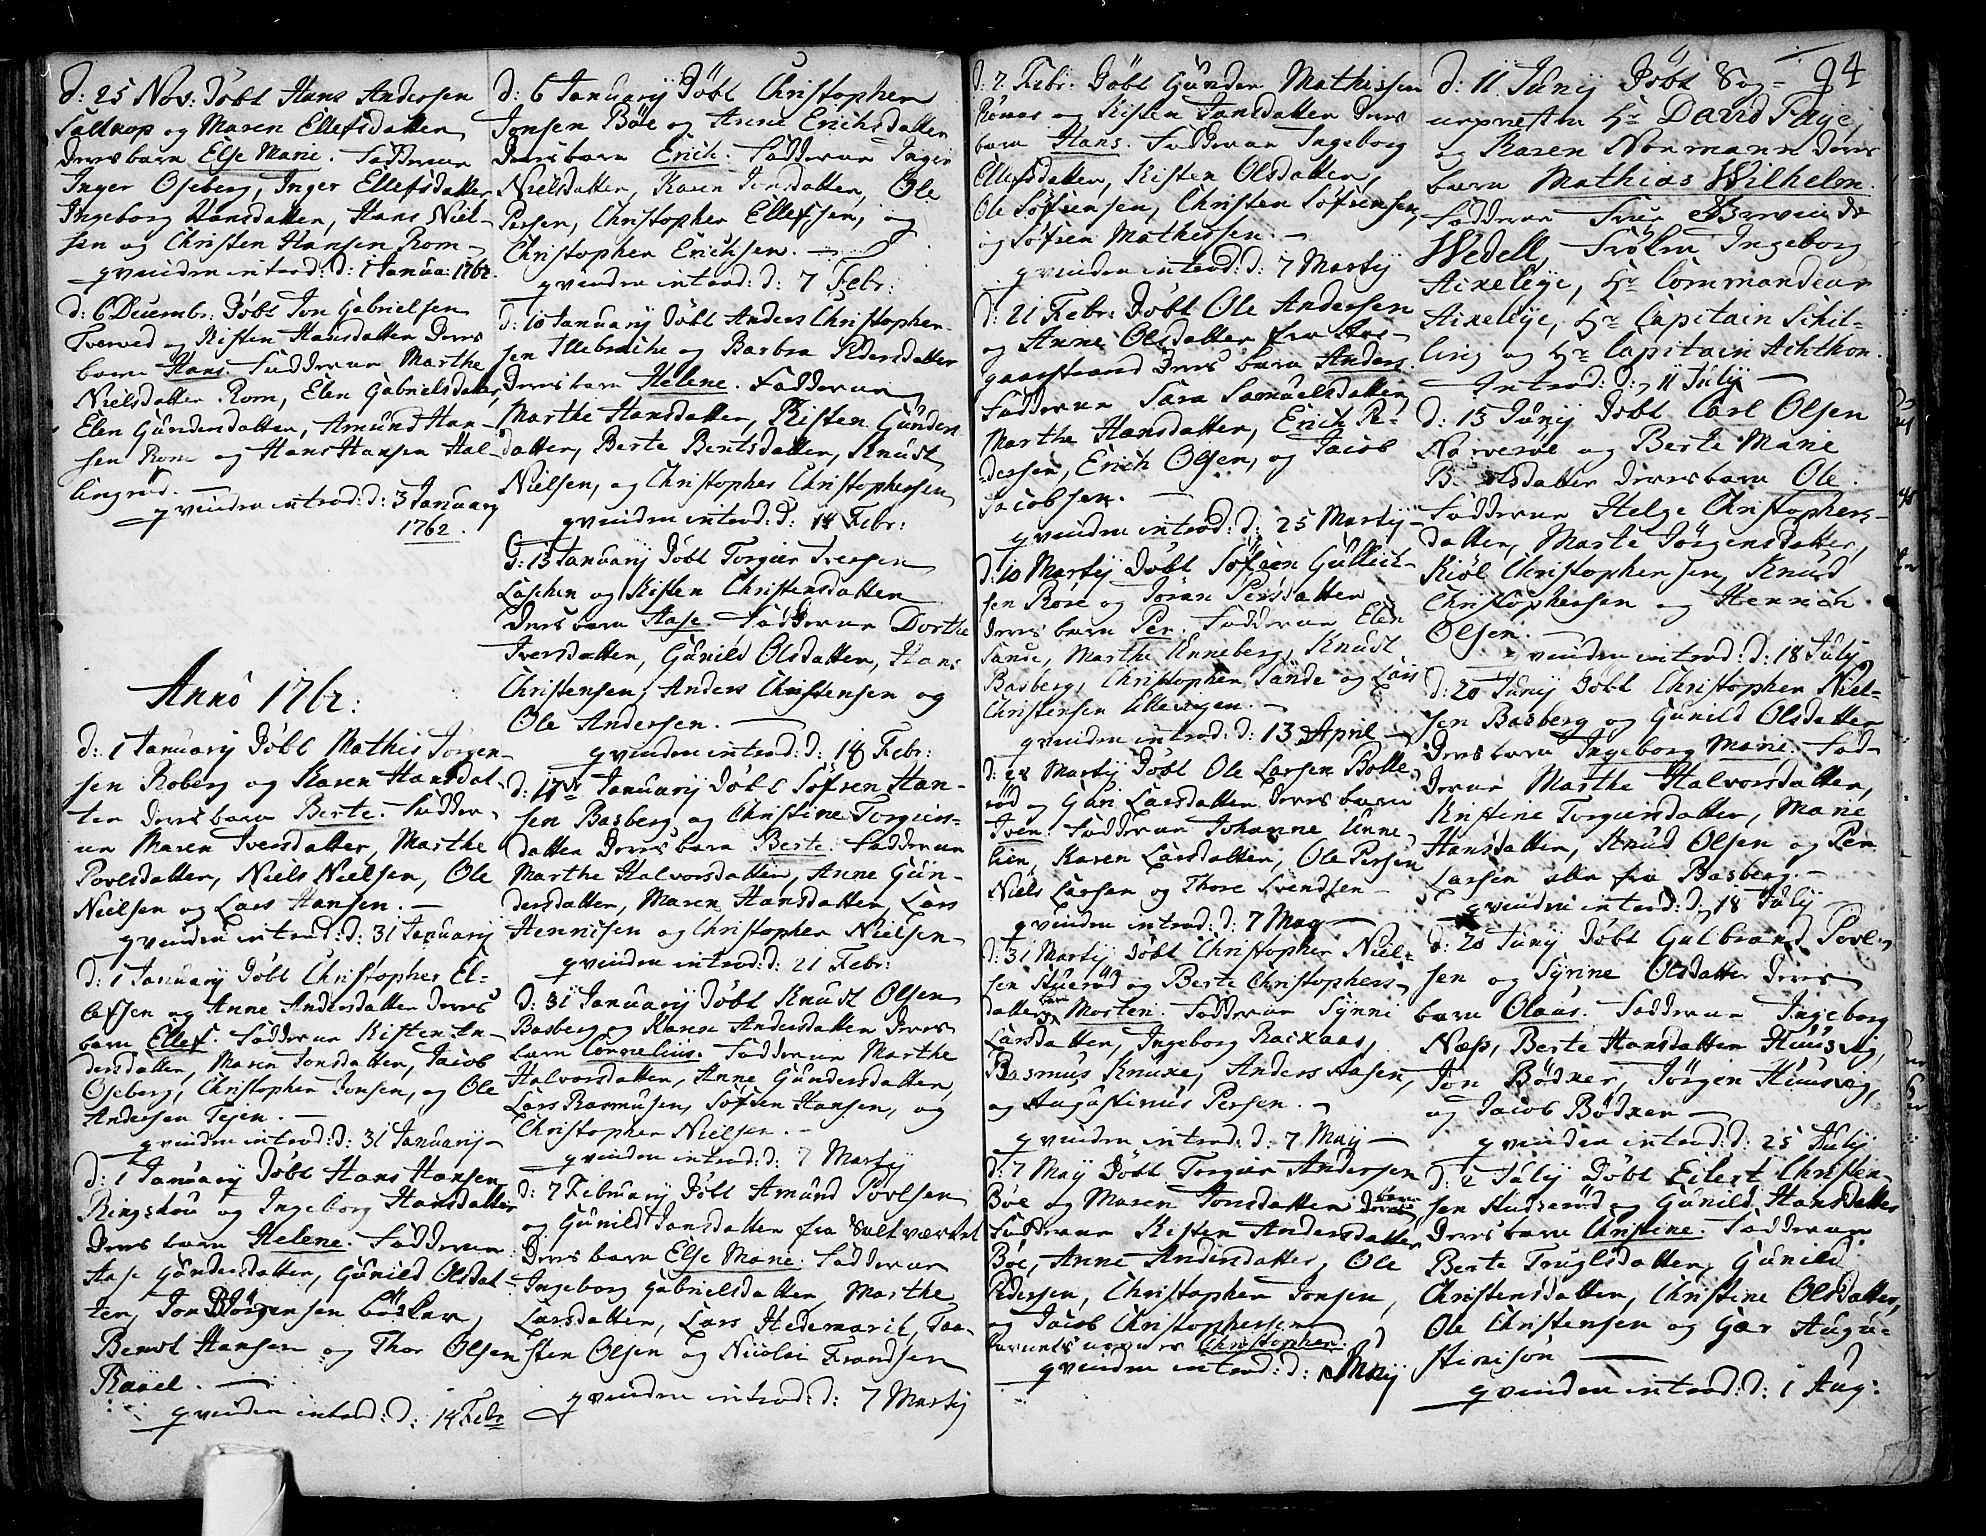 d: 25 Nov: Döbt Hans Andersen
Saltkop og Maren Ellefsdatter
Deres barn Else Marie. Fadderne
Inger Oseberg, Inger Ellefsdatter
Ingeborg Hansdatter, Hans Niel-
sen og Christen Hansen Rom
qvinden introd: d: 1 Janua: 1762.
d: 6 Decembr: Döbt Jon Gabrielsen
Tverved og Kisten Hansdatter Deres
barn Hans. Fadderne Marthe
Nielsdatter Rom, Elen Gabrielsdatter,
Elen Gundersdatter, Amund Han-
sen Rom og Hans Hansen Hal-
lingrud.
qvinden introd: d: 3 January
1762.
Anno 1762:
d: 1 Januarij Döbt Mathis Jörgen-
sen Roberg og Karen Hansdat-
ter Deres barn Berte. Fadder-
ne Maren Iversdatter, Marthe
Povelsdatter, Niels Nielsen, Ole
Nielsen og Lars Hansen.
qvinden introd: d: 31 Januarij
d: 1 Januarij Döbt Christopher El-
lefsen og Anne Andersdatter Deres
barn Ellef. Fadderne Kisten An-
dersdatter, Maren Jonsdatter, Jacob
Oseberg, Christopher Jonsen, og Ole
Andersen Tejen.
qvinden introd: d: 31 Januarij
d: 1 Januarij Döbt Hans Hansen
Ringshou og Ingeborg Hansdatter
Deres barn Helene. Fadderne
Aase Gundersdatter, Gunild Olsdat-
ter, Jon Jörgensen
Bernt Hansen og Thor Olsen
Ravel.
qvinden introd: d: 14 Febr
d: 6 Januarij Döbt Christopher
Jonsen Böe og Anne Erichsdatter
Deres barn Erich. Fadderne Inger
Nielsdatter, Karen Jonsdatter, Ole
Persen, Christopher Ellefsen, og
Christopher Erichsen.
qvinden introd: d: 7 Febr:
d: 10 Januarij Döbt Anders Christopher-
sen Illebreche og Barbra Pedersdatter
Deres barn Helene. Fadderne
Marthe Hansdatter, Kisten Gunders
datter, Berte Berntsdatter, Knudt
Nielsen, og Christopher Christophersen
qvinden introd: d: 14 Febr:
d: 13 Januarij Döbt Torgier Iversen
Laschen og Kisten Christensdatter
Deres barn Aase. Fadderne Dorthe
Iversdatter, Gunild Olsdatter, Hans
Christensen, Anders Christensen og
Ole Andersen.
qvinden introd: d: 18 Febr:
d: 17 Januarij Döbt Söfren Han-
sen Basberg og Christine Torgiers-
datter Deres barn Berte. Fadderne
Marthe Halvorsdatter, Anne Gun-
dersdatter, Maren Hansdatter, Lars
Henrisen og Christopher Nielsen
qvinden introd: d: 21 Febr:
d: 31 Januarij Döbt Knudt Olsen
Basberg og Karen Andersdatter Deres
barn Cornelius. Fadderne Marthe
Halvorsdatter, Anne Gundersdatter,
Lars Rasmusen, Söfren Hansen, og
Christopher Nielsen.
qvinden introd: d: 7 Martij
d: 7 Februarij Döbt Amund Povelsen
og Gunild Jansdatter fra Saltværket
Deres barn Else Marie. Fadderne
Ingeborg Gabrielsdatter, Marthe
Larsdatter, Lars Hedemark, Taa-
sten Olsen og Nicolai Frandsen
qvinden introd: d: 7 Martij
d: 7 Febr: Döbt Gunder Mathissen
Römas og Kisten Jansdatter Deres
barn Hans. Fadderne Ingeborg
Ellefsdatter, Kisten Olsdatter,
Ole Söfrensen, Christen Söfrensen,
og Söfren Mathissen.
qvinden introd: d: 7 Martij
d: 21 Febr: Döbt Ole Andersen
og Anne Olsdatter fra Aas-
gaardstrand Deres barn Anders.
Fadderne Sara Samuelsdatter
Marthe Hansdatter, Erich Pe-
dersen, Erich Olsen, og Jacob
Jacobsen.
qvinden introd: d: 25 Martij
d: 10 Martij Döbt Söfren Gullich-
sen Röre og Jöran Persdatter
Deres barn Per. Fadderne Elen
Sande, Marthe Unneberg, Knudt
Basberg, Christopher Sande og Lars
Christensen Ellevegen.
qvinden introd: d: 13 April
d: 28 Martij Döbt Ole Larsen Bolle-
röd og Guri Larsdatter Deres barn
Iver. Fadderne Johanne Unne-
lien, Karen Larsdatter, Ole Persen
Niels Larsen og Thore Svendsen
qvinden introd: d: 7 May
d: 31 Martij Döbt Christopher Niel-
sen Huseröd og Berte Christophers-
datter barn Morten. Fadderne Synni
Larsdatter, Ingeborg Rackaas,
Rasmus Knuxe, Anders Aasen,
og Augustinus Persen.
qvinden introd: d: 7 May
d: 7 May Döbt Torgier Andersen
Böe og Maren Jonsdatter Deres barn
Fadderne Kisten Andersdatter
Böe, Anne Andersdatter, Ole
Pedersen, Christopher Jonsen,
og Jacob Christophersen
barnets navn er Christopher.
qvinden introd: d: Maij
94
d: 11 Junij Döbt Sog-
nepresten Hr David Faye,
og Karen Normann Deres
barn Mathias Wilhelm.
Fadderne Frue
Wedell, Frökn Ingeborg
Aixeleye, Hr Commandeur
Aixeleye, Hr Capitain Schil-
ling og Hr Capitain Achthon.
Introd: d: 11 Julij
d: 13 Junij Döbt Carl Olsen
Narveröe og Berte Marie
olsdatter Deres barn Ole.
Fadderne Helge Christophers-
datter, Marte Jörgensdatter,
Kiöl Christophersen, Knud
Christophersen og Henrich
Olsen.
qvinden introd: d: 18 Julij
d: 20 Junij Döbt Christopher Niel-
sen Basberg og Gunild Olsdatter
Deres barn Ingeborg Marie. Fad-
derne Marthe Halvorsdatter,
Kristine Torgiersdatter, Marie
Hansdatter, Knud Olsen og Per
Larsen alle fra Basberg.
qvinden introd: d: 18 Julij
d: 20 Junij Döbt Gulbrand Povel-
sen og Syrine Olsdatter Deres
barn Olaus. Fadderne Ingeborg
Næss, Berte Hansdatter Huusvig,
Jon Bödker, Jörgen Huusvig,
og Jacob Bödker
qvinden introd: d: 25 Julij
d: 2 Julij Döbt Eilert Christen-
sen Huseröd og Gunild Hansdatter
Deres barn Christine. Fadderne
Berte Truglsdatter, Gunild
Christensdatter, Christine Olsdatter,
Ole Christensen og Gær Augu-
stinisön
qvinden introd: d: 1 Aug: